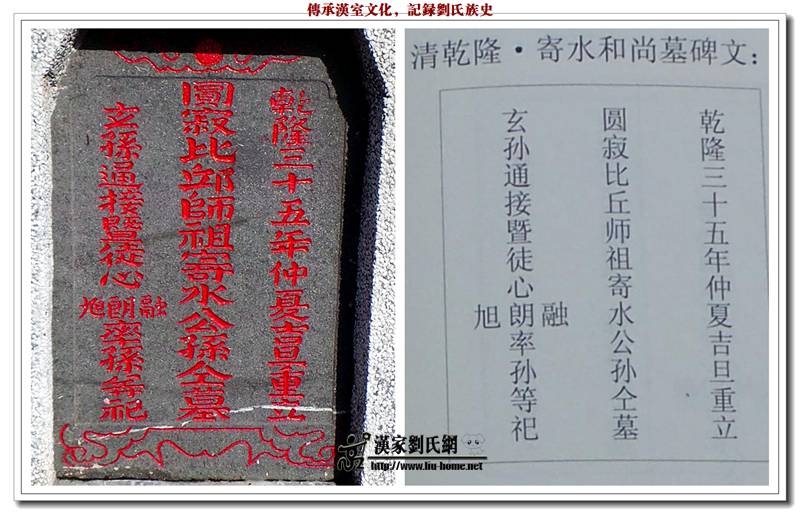 傳承漢室文化，記録劉氏族史
乾隆三十五年仲夏吉旦重立
圓寂比邱師祖寄水公孫仝墓
玄孫通接暨徒心融朗旭率孫等祀
清乾隆·寄水和尚墓碑文：
乾隆三十五年仲夏吉旦重立
圆寂比丘师祖寄水公孙仝墓
玄孙通接暨徒心融朗旭率孙等祀
漢家劉氏網
http://www.liu-home.net